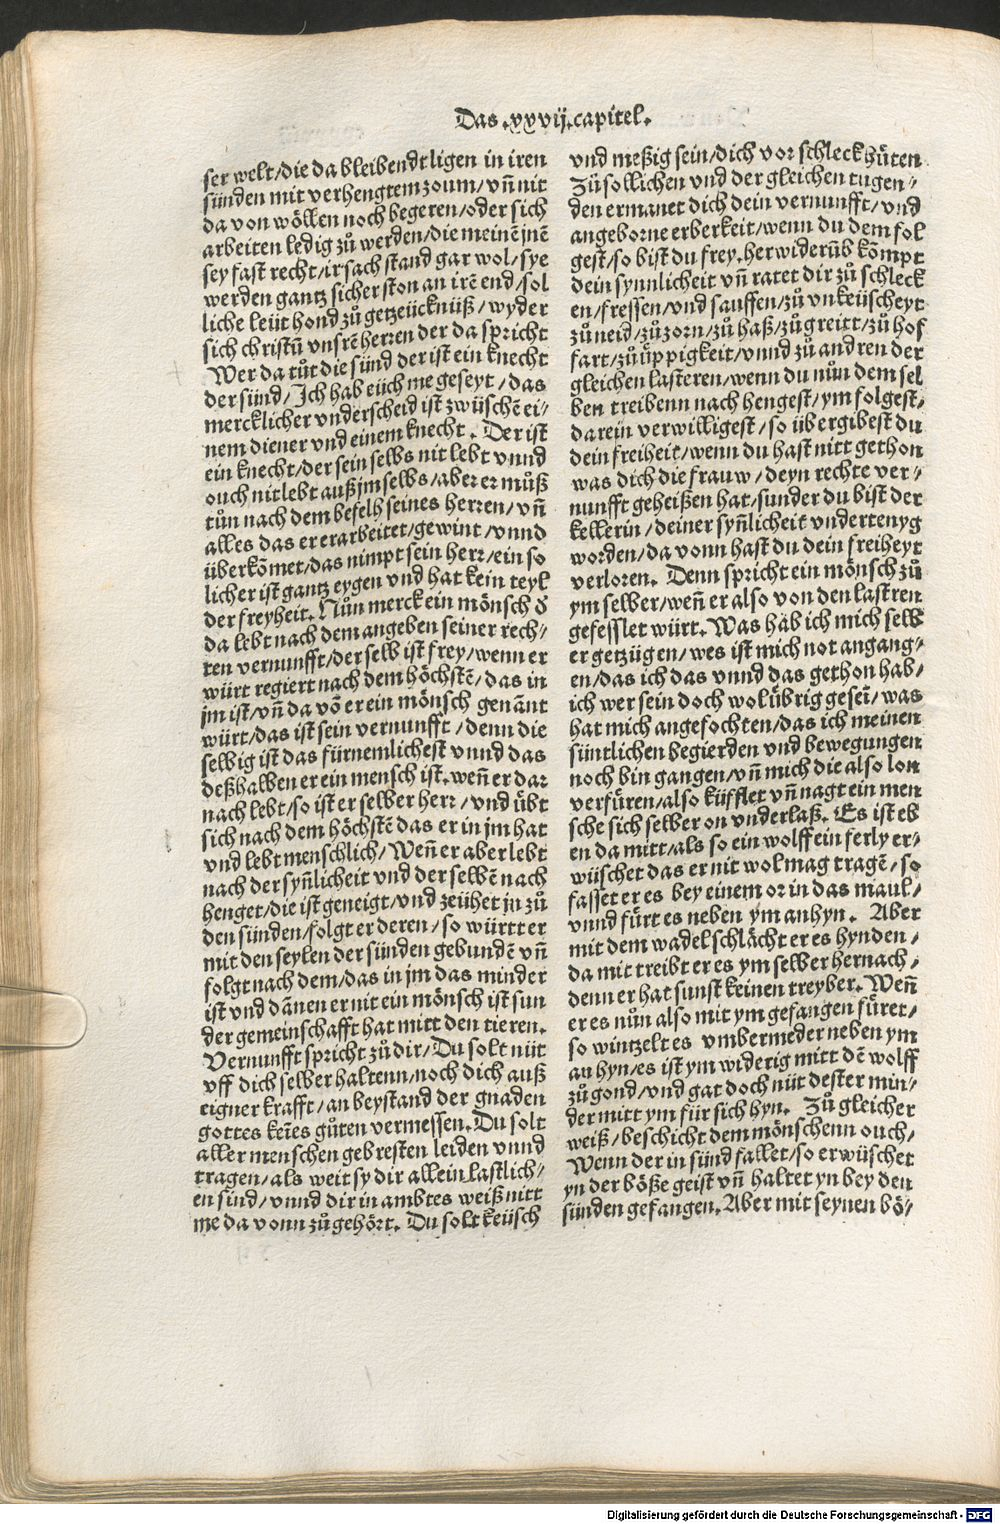 Das .xxvij. capitel.
ser welt/die da bleibendt ligen in iren
sünden mit verhengtem zoum/vn̄ nit
da von wöllen noch begeren/oder sich
arbeiten ledig zů werden/die meinē jnē
sey fast recht/ir sach stand gar wol/sye
werden gantz sicher ston an irē end/sol
liche leüt hond zů getzeücknüß/wyder
sich christū vnsrē herren der da spricht
Wer da tůt die sünd der ist ein knecht
der sünd/Ich hab eüch me geseyt/das
mercklicher vnderscheid ist zwüschē ei/
nem diener vnd einem knecht. Der ist
ein knecht/der sein selbs nit lebt vnnd
ouch nit lebt auß jm selbs/aber er můß
tůn nach dem befelh seines herren/vn̄
alles das er erarbeitet/gewint/vnnd
überkōmet/das nimpt sein herr/ein so
licher ist gantz eygen vnd hat kein teyl
der freyheit. Nůn merck ein mönsch d̄
da lebt nach dem angeben seiner rech/
ten vernunfft/der selb ist frey/wenn er
würt regiert nach dem höchstē/das in
jm ist/vn̄ da vō er ein mönsch genānt
würt/das ist sein vernunfft/denn die
selbig ist das fürnemlichest vnnd das
deßhalben er ein mensch ist. wen̄ er dar
nach lebt/so ist er selber herr/vnd übt
sich nach dem höchstē das er in jm hat
vnd lebt menschlich/Wen̄ er aber lebt
nach der syn̄licheit vnd der selbē nach
henget/die ist geneigt/vnd zeühet jn zů
den sünden/folgt er deren/so württ er
mit den seylen der sünden gebundē vn̄
folgt nach dem/das in jm das minder
ist vnd dānen er nit ein mönsch ist sun
der gemeinschafft hat mitt den tieren.
Vernunfft spricht zů dir/Du solt nüt
vff dich selber haltenn/noch dich auß
eigner krafft/an beystand der gnaden
gottes keīes gůten vermessen. Du solt
aller menschen gebresten leiden vnnd
tragen/als weit sy dir allein lastlich/
en sind/vnnd dir in ambtes weiß nitt
me da vonn zů gehört. Du solt keüsch
vnd meßig sein/dich vor schleck hüten
Zů sollichen vnd der gleichen tugen/
den ermanet dich dein vernunfft/vnd
angeborne erberkeit/wenn du dem fol
gest/so bist du frey. herwiderūb kōmpt
dein synnlicheit vn̄ ratet dir zů schleck
en/fressen/vnd sauffen/zů vnkeüscheyt
zů neid/zů zorn/zů haß/zů greitt/zů hof
fart/zů üppigkeit/vnnd zů andren der
gleichen lasteren/wenn du nůn dem sel
ben treibenn nach hengest/ym folgest/
darein verwilligest/so übergibest du
dein freiheit/wenn du hast nitt gethon
was dich die frauw/deyn rechte ver/
nunfft geheißen hat/sunder du bist der
kellerin/deiner syn̄licheit vndertenyg
worden/da vonn hast du dein freiheyt
verloren. Denn spricht ein mönsch zů
ym selber/wen̄ er also von den lastren
gefesslet würt. Was hāb ich mich selb
er getzügen/wes ist mich not angang/
en/das ich das vnnd das gethon hab/
ich wer sein doch wol übrig geseī/was
hat mich angefochten/das ich meinen
süntlichen begierden vnd bewegungen
noch bin gangen/vn̄ mich die also lon
verfüren/also kiffleт vn̄ nagt ein men
sche sich selber on vnderlaß. Es ist eb
en da mitt/als so ein wolff ein ferly er/
wüschet das er nit wol mag tragē/so
fasset er es bey einem or in das maul/
vnnd fürt es neben ym anhyn. Aber
mit dem wadel schlächt er es hynden/
da mit treibt er es ym selber hernach/
denn er hat sunst keinen treyber. Wen̄
er es nůn also mit ym gefangen füret/
so wintzelt es vmbermeder neben ym
an hyn/es ist ym widerig mitt dē wolff
zů gond/vnd gat doch nüt dester min/
der mitt ym für sich hyn. Zů gleicher
weiß/beschicht dem mönschenn ouch/
Wenn der in sünd fallet/so erwüschet
yn der böße geist vn̄ haltet yn bey den
sünden gefangen. Aber mit seynen bö/
Digitalisierung gefördert durch die Deutsche Forschungsgemeinschaft - DFG